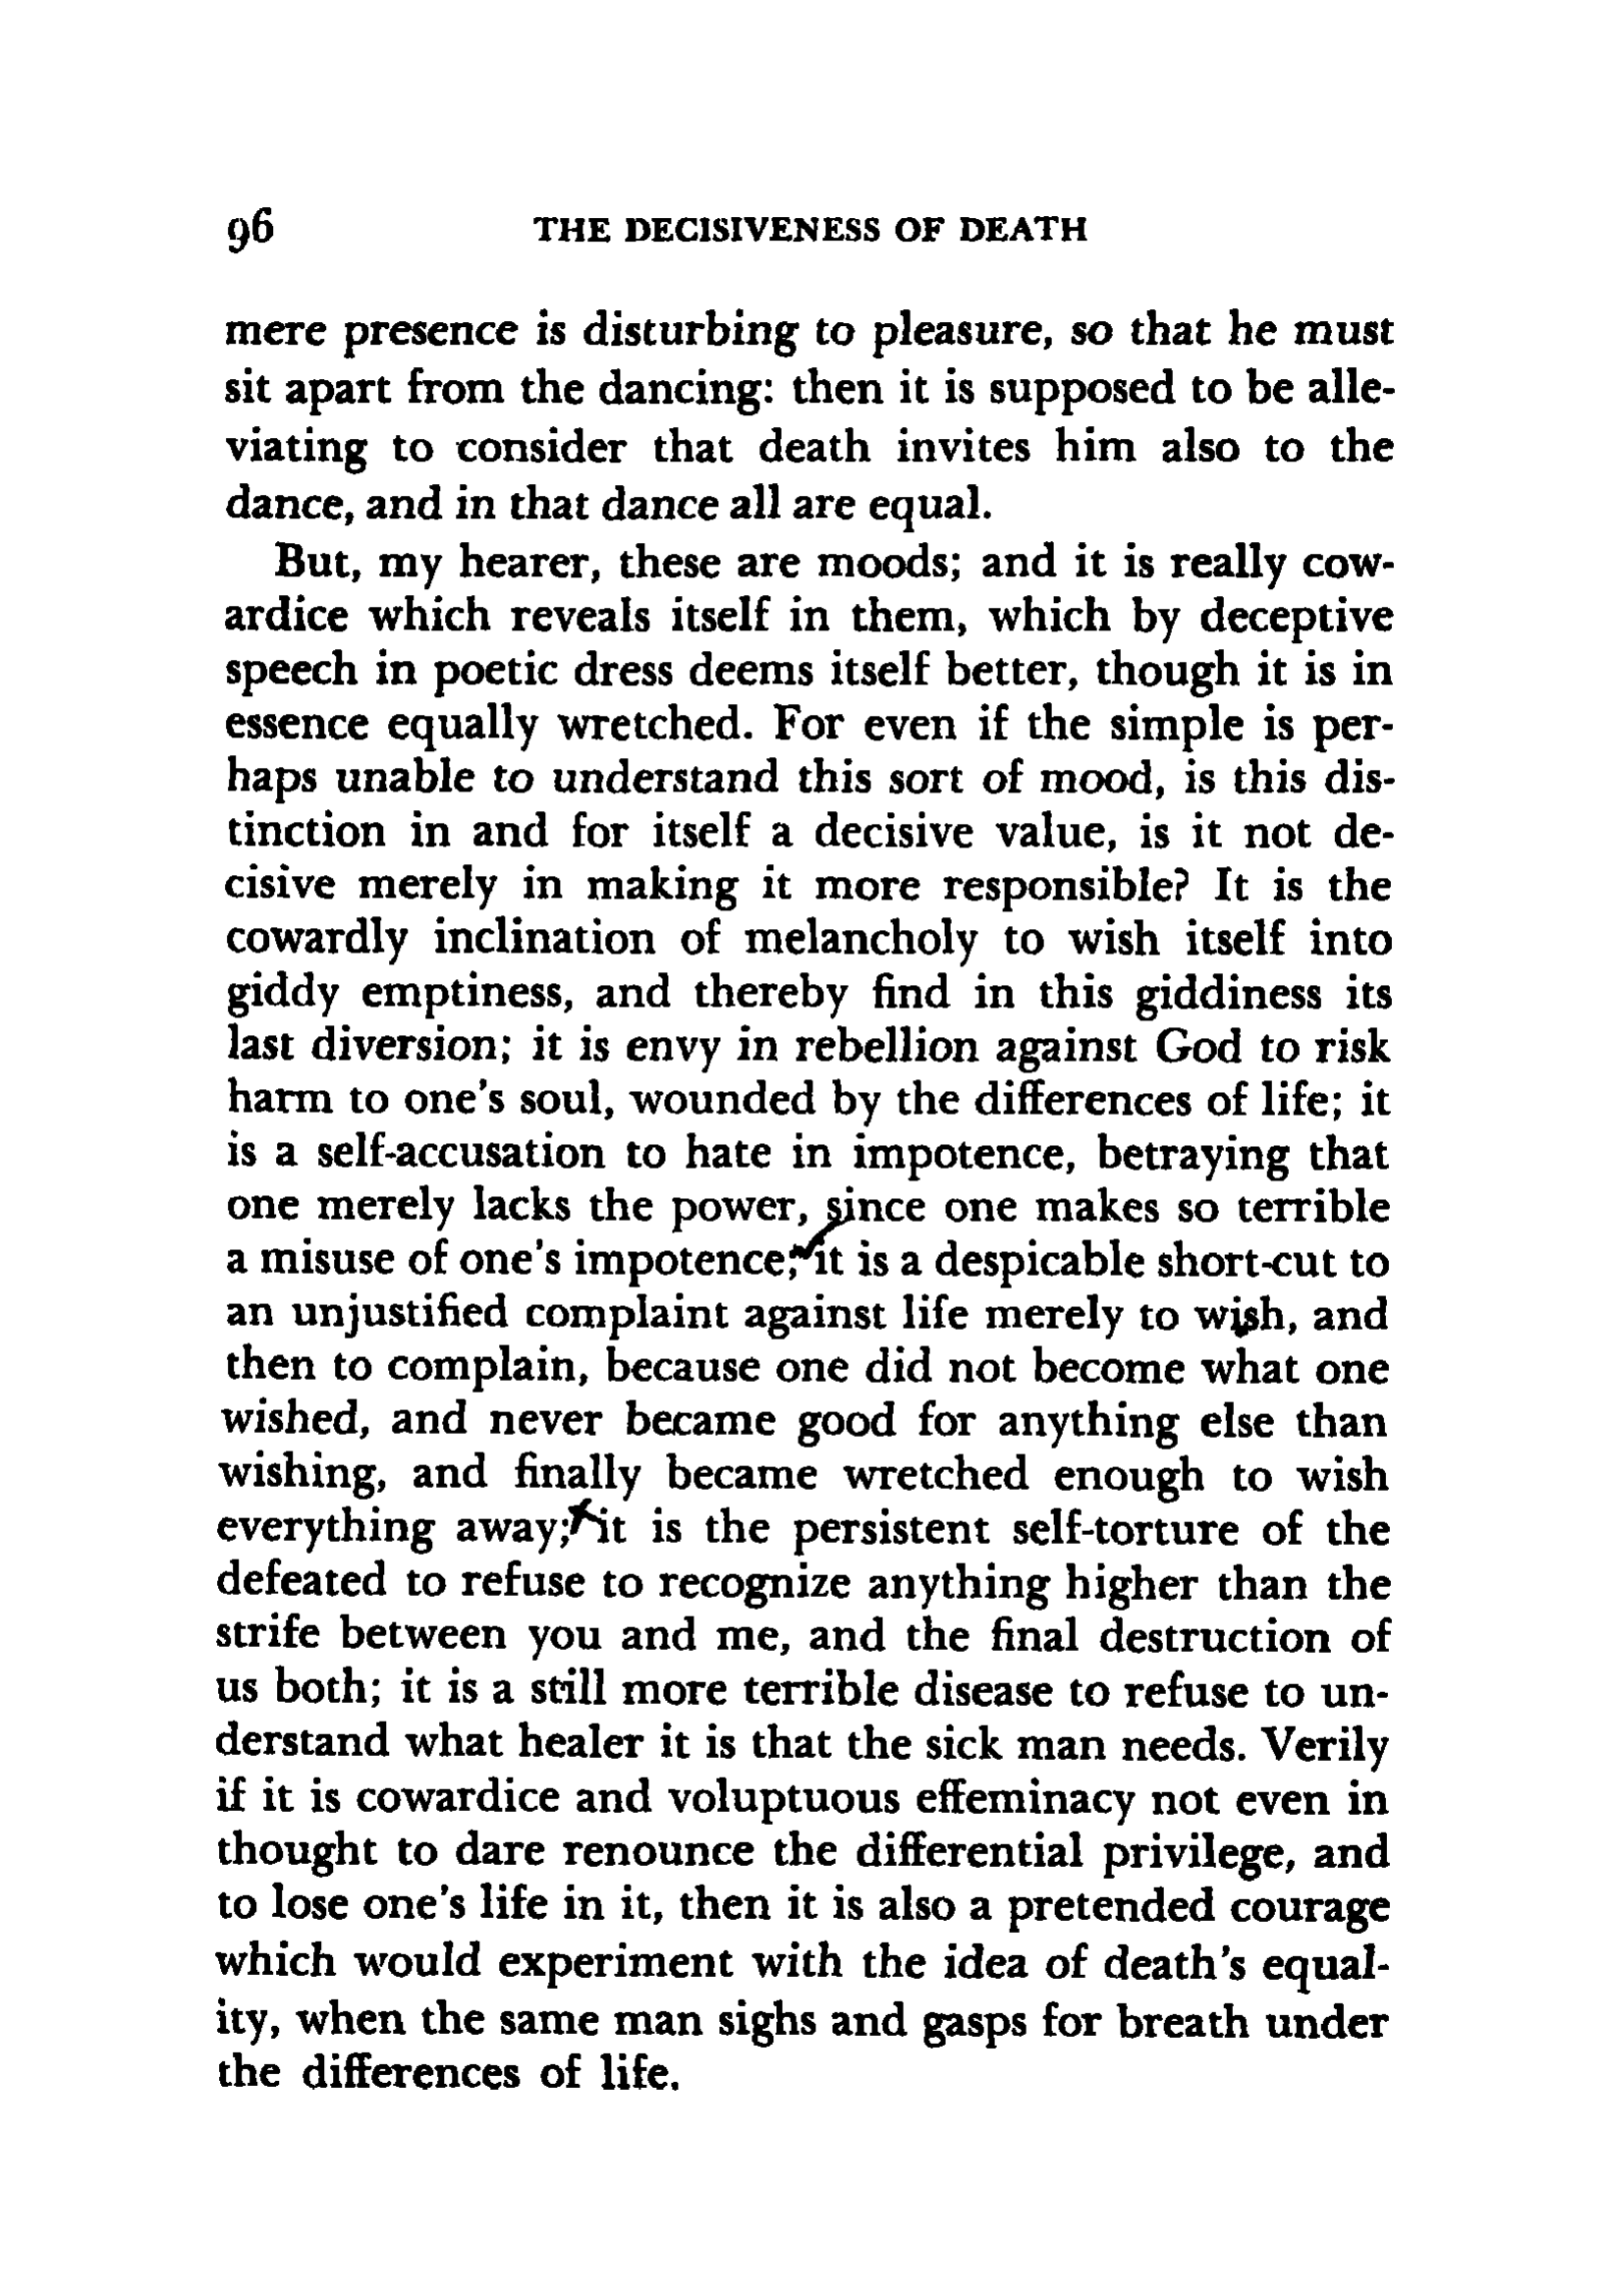 96 THE DECISIVENESS OF DEATH
mere presence is disturbing to pleasure, so that he must
sit apart from the dancing: then it is supposed to be alle-
viating to consider that death invites him also to the
dance, and in that dance all are equal.
But, my hearer, these are moods; and it is really cow-
ardice which reveals itself in them, which by deceptive
speech in poetic dress deems itself better, though it is in
essence equally wretched. For even if the simple is per-
haps unable to understand this sort of mood, is this dis-
tinction in and for itself a decisive value, is it not de-
cisive merely in making it more responsible? It is the
cowardly inclination of melancholy to wish itself into
giddy emptiness, and thereby find in this giddiness its
last diversion; it is envy in rebellion against God to risk
harm to one's soul, wounded by the differences of life; it
is a self-accusation to hate in impotence, betraying that
one merely lacks the power, since one makes so terrible
a misuse of one's impotence; it is a despicable short-cut to
an unjustified complaint against life merely to wish, and
then to complain, because one did not become what one
wished, and never became good for anything else than
wishing, and finally became wretched enough to wish
everything away; it is the persistent self-torture of the
defeated to refuse to recognize anything higher than the
strife between you and me, and the final destruction of
us both; it is a still more terrible disease to refuse to un-
derstand what healer it is that the sick man needs. Verily
if it is cowardice and voluptuous effeminacy not even in
thought to dare renounce the differential privilege, and
to lose one's life in it, then it is also a pretended courage
which would experiment with the idea of death's equal-
ity, when the same man sighs and gasps for breath under
the differences of life.